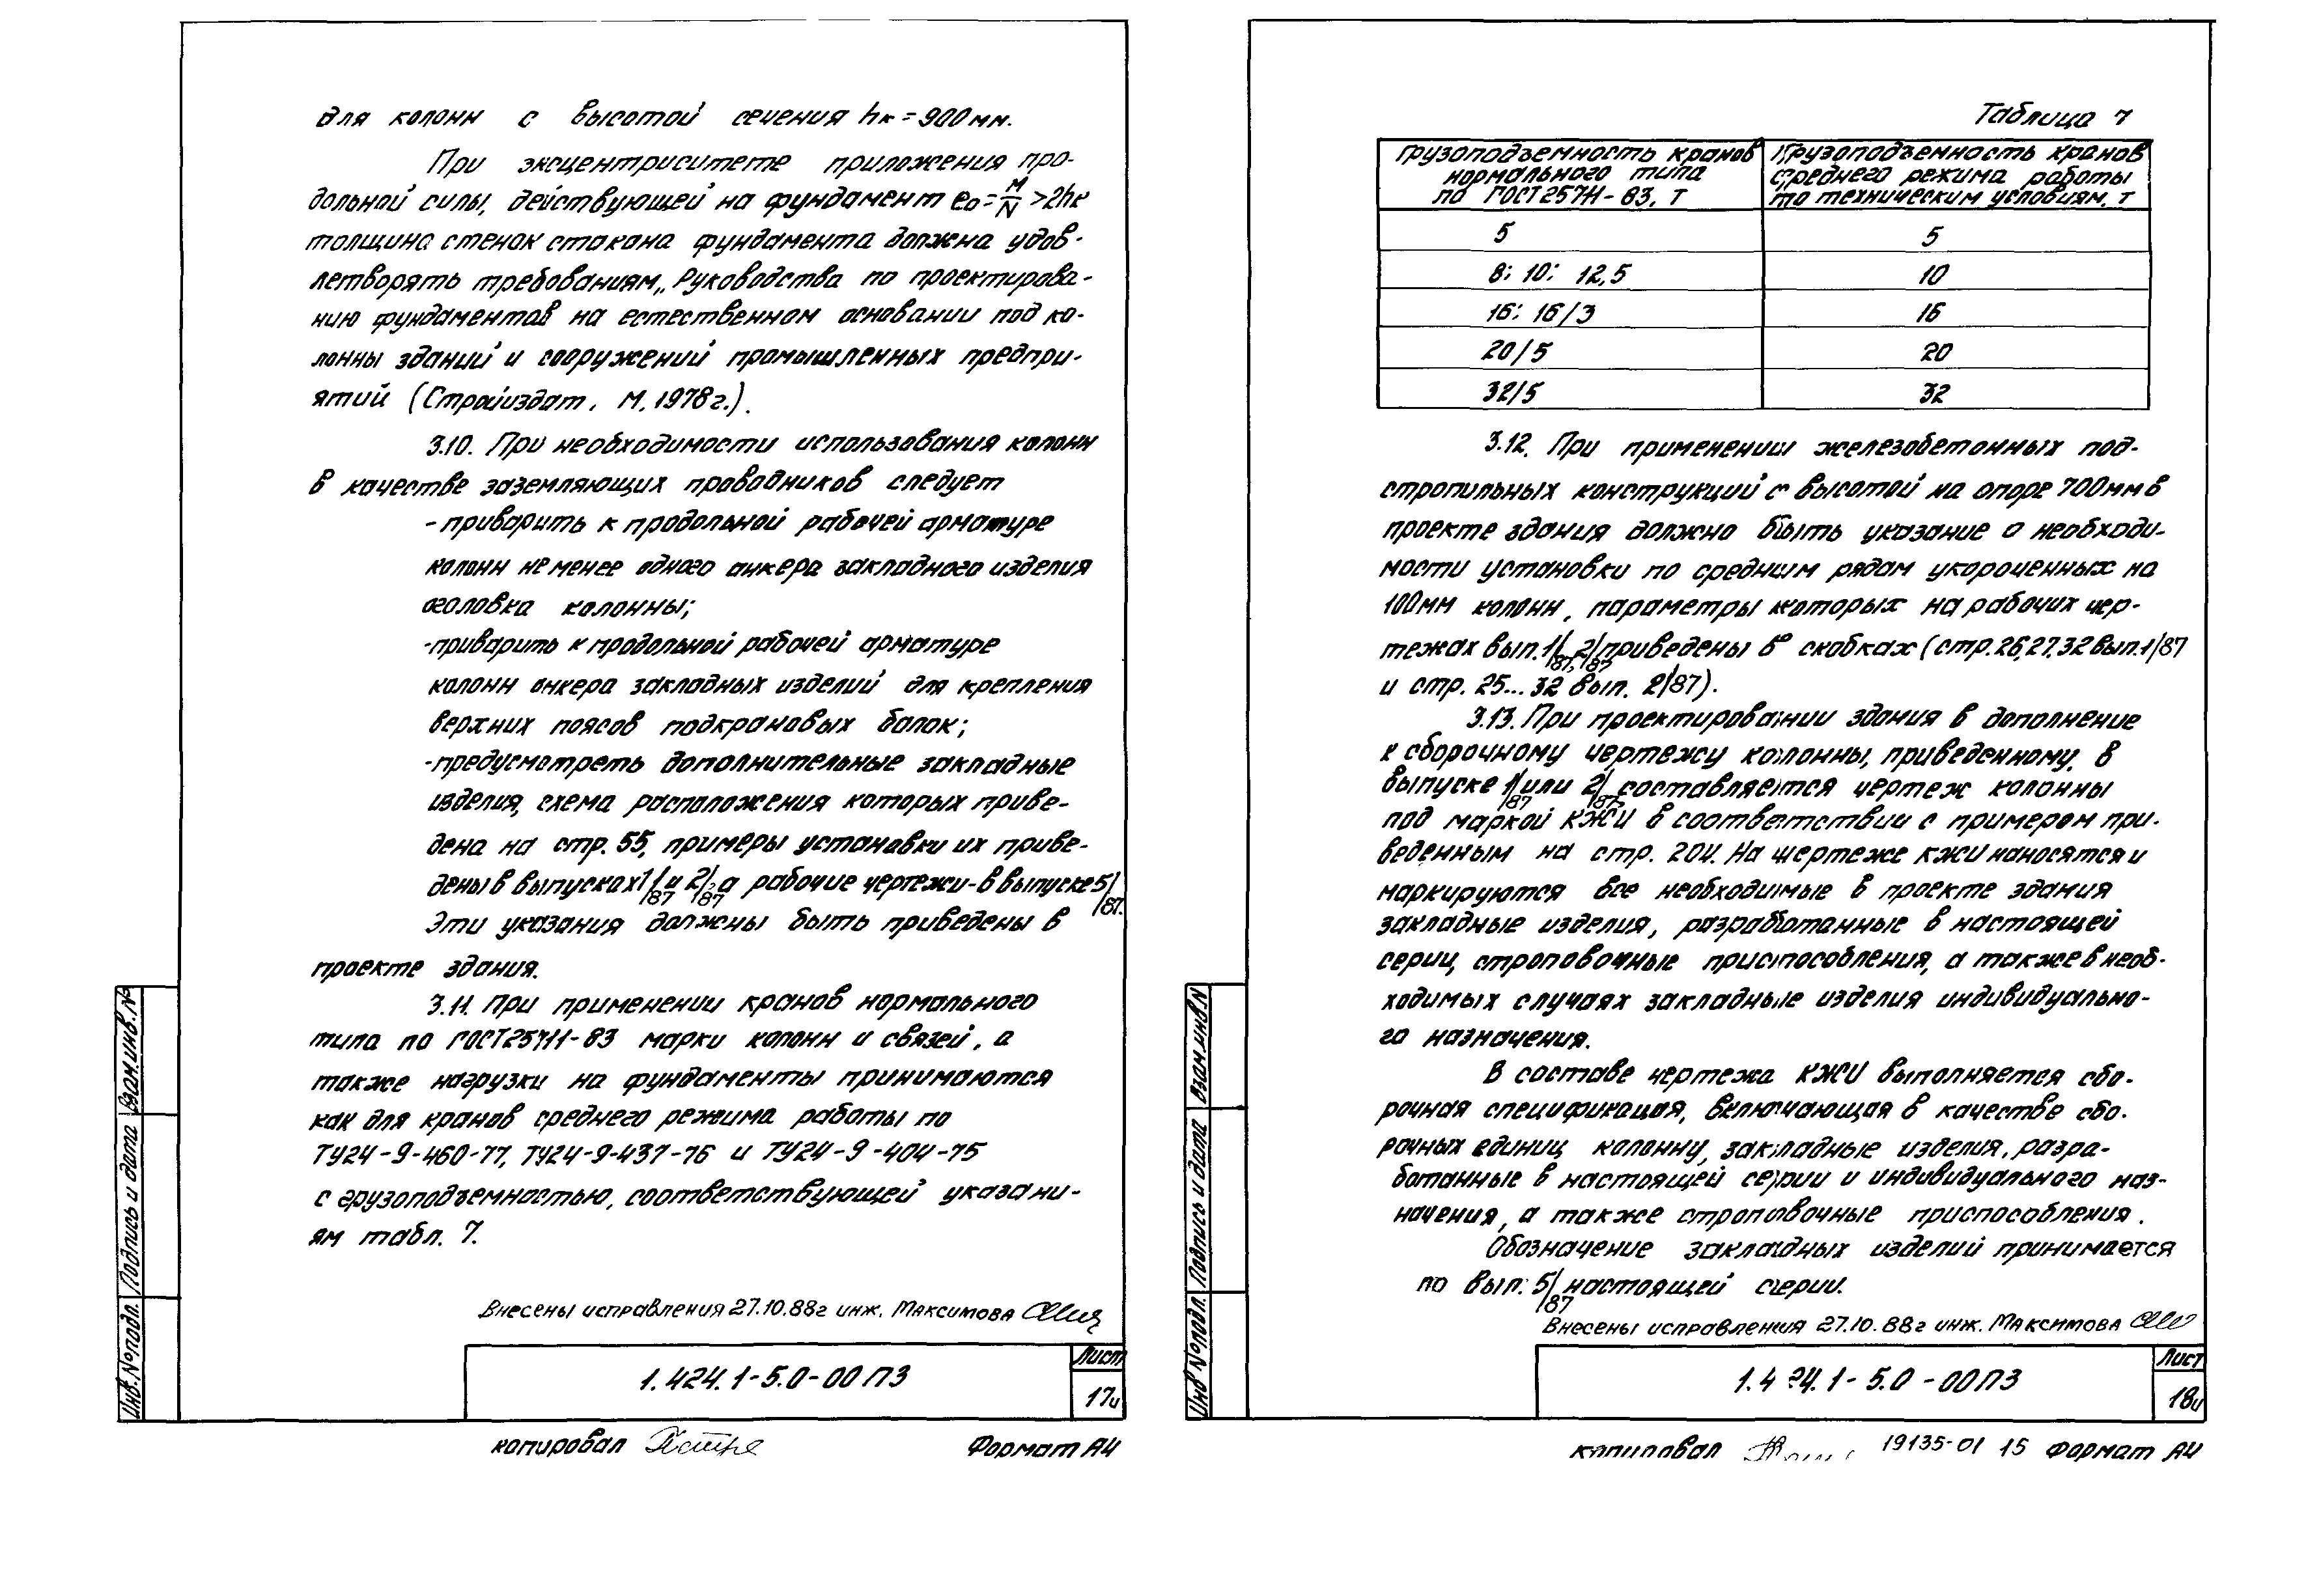 для колонн с высотой сечения hк = 900 мм.
При эксцентриситете приложения про-
дольной силы, действующей на фундамент e₀ = M/N > 2hк
толщина стенок стакана фундамента должна удов-
летворять требованиям „Руководства по проектирова-
нию фундаментов на естественном основании под ко-
лонны зданий и сооружений промышленных предпри-
ятий (Стройиздат, М, 1978 г.).
3.10. При необходимости использования колонн
в качестве заземляющих проводников следует
- приварить к продольной рабочей арматуре
колонн не менее одного анкера закладного изделия
оголовка колонны;
- приварить к продольной рабочей арматуре
колонн анкера закладных изделий для крепления
верхних поясов подкрановых балок;
- предусмотреть дополнительные закладные
изделия, схема расположения которых приве-
дена на стр. 55, примеры установки их приве-
дены в выпусках 1/87 и 2/87, а рабочие чертежи - в выпуске 5/87.
Эти указания должны быть приведены в
проекте здания.
3.11. При применении кранов нормального
типа по ГОСТ 25711-83 марки колонн и связей, а
также нагрузки на фундаменты принимаются
как для кранов среднего режима работы по
ТУ24-9-460-77, ТУ24-9-437-76 и ТУ24-9-404-75
с грузоподъемностью, соответствующей указани-
ям табл. 7.
Внесены исправления 27.10.88г инж. Максимова
1.424.1-5.0-00ПЗ
Лист
17и
Взам.инв.№
Подпись и дата
Инв.№подл.
копировал
Формат А4
Таблица 7
Грузоподъемность кранов нормального типа по ГОСТ 25711-83, т
Грузоподъемность кранов среднего режима работы по техническим условиям, т
5 5
8; 10; 12,5 10
16; 16/3 16
20/5 20
32/5 32
3.12. При применении железобетонных под-
стропильных конструкций с высотой на опоре 700мм в
проекте здания должно быть указание о необходи-
мости установки по средним рядам укороченных на
100мм колонн, параметры которых на рабочих чер-
тежах вып. 1/87, 2/87 приведены в скобках (стр. 26,27,32 вып. 1/87
и стр. 25...32 вып. 2/87).
3.13. При проектировании здания в дополнение
к сборочному чертежу колонны, приведенному в
выпуске 1/87 или 2/87, составляется чертеж колонны
под маркой КЖИ в соответствии с примером при-
веденным на стр. 204. На чертеже КЖИ наносятся и
маркируются все необходимые в проекте здания
закладные изделия, разработанные в настоящей
серии, строповочные приспособления, а также в необ-
ходимых случаях закладные изделия индивидуально-
го назначения.
В составе чертежа КЖИ выполняется сбо-
рочная спецификация, включающая в качестве сбо-
рочных единиц колонну, закладные изделия, разра-
ботанные в настоящей серии и индивидуального наз-
начения, а также строповочные приспособления.
Обозначение закладных изделий принимается
по вып. 5/87 настоящей серии.
Внесены исправления 27.10.88г инж. Максимова
1.424.1-5.0-00ПЗ
Лист
18и
Взам.инв№
Подпись и дата
Инв №подл.
копировал
19135-01 15 Формат А4